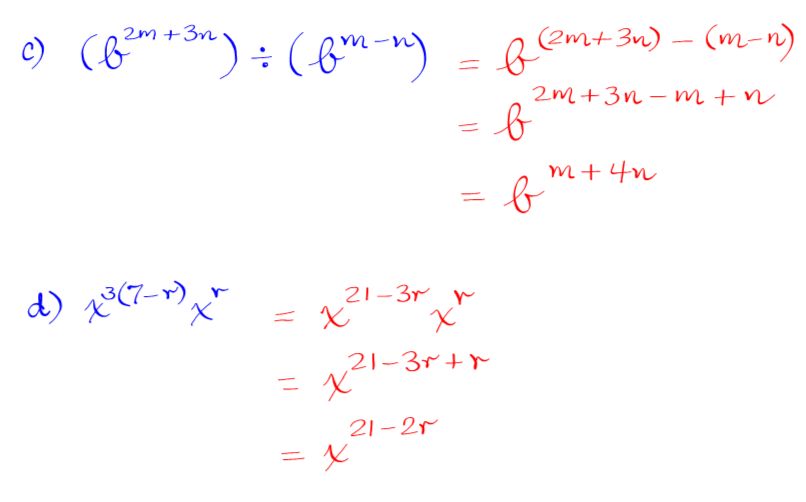 c) (b^{2m+3n}) ÷ (b^{m-n}) = b^{(2m+3n)-(m-n)}
= b^{2m+3n-m+n}
= b^{m+4n}
d) x^{3(7-r)} x^{r} = x^{21-3r} x^{r}
= x^{21-3r+r}
= x^{21-2r}